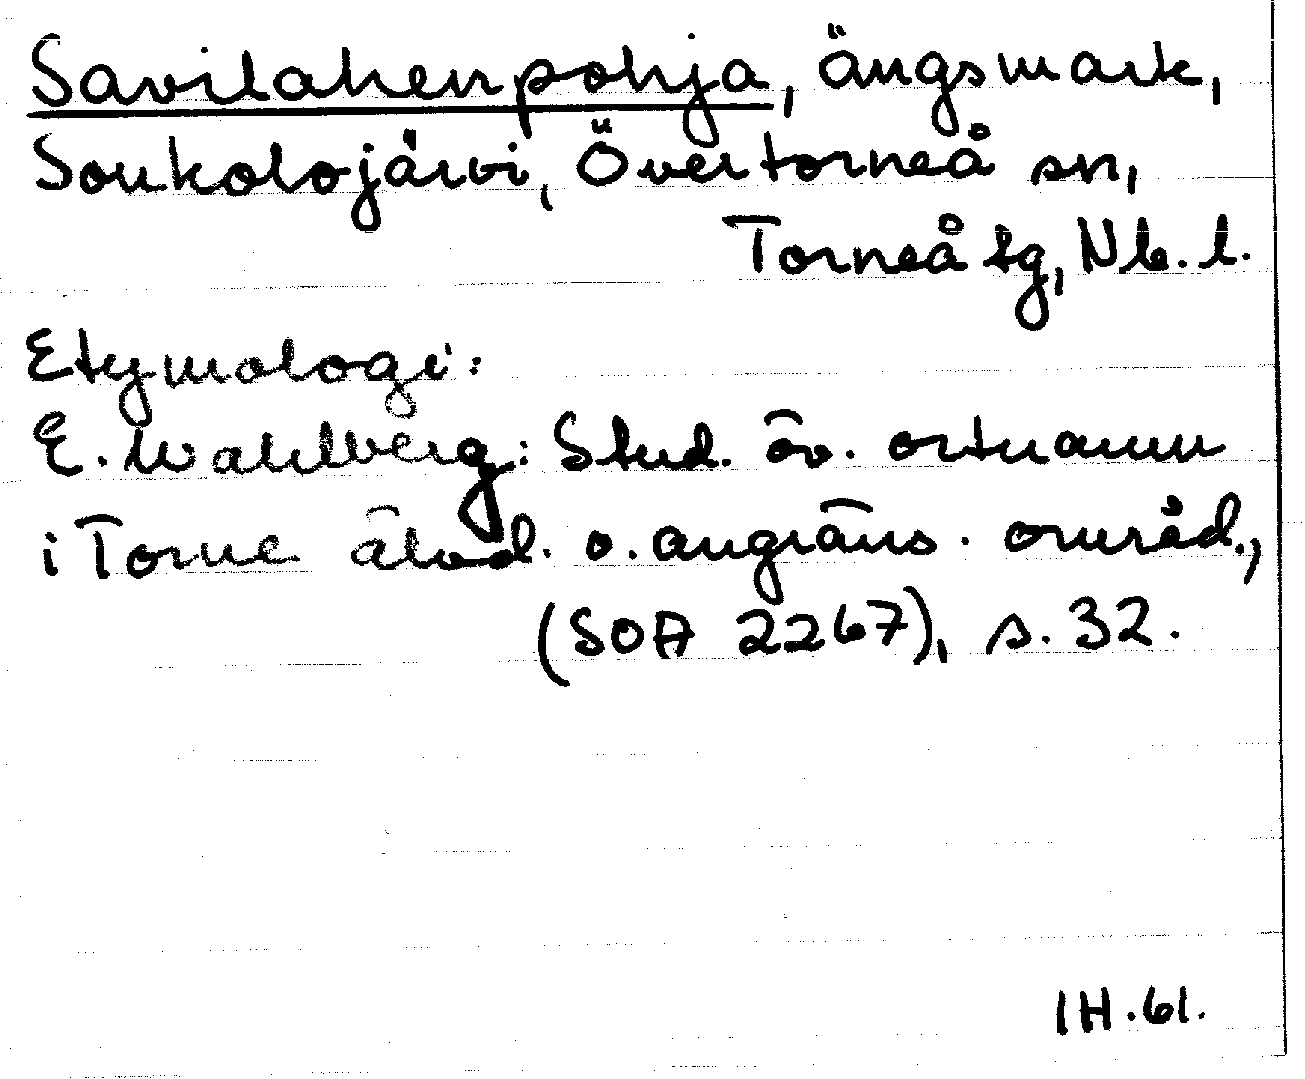 Savilahenpohja, ängsmark,
Soukolojärvi, Övertorneå sn,
Torneå tg, Nb. l.
Etymologi:
E. Wahlberg: Stud. öv. ortnamn
i Torne älvd. o. angräns. områd.,
(SOA 2267), s. 32.
IH. 61.